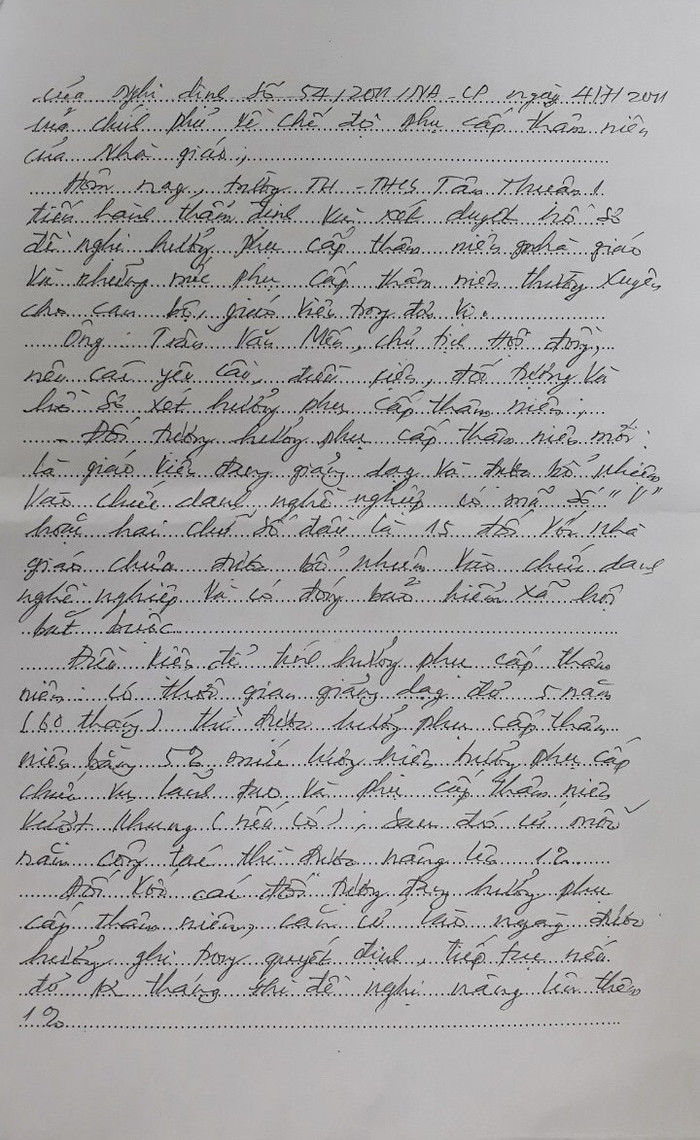 của Nghị định số 54/2011/NĐ-CP ngày 4/7/2011
của chính phủ về chế độ phụ cấp thâm niên
của Nhà giáo;
Hôm nay, trường TH-THCS Tân Thuận 1
tiến hành thẩm định và xét duyệt hồ sơ
đề nghị hưởng phụ cấp thâm niên nhà giáo
và những mức phụ cấp thâm niên thường xuyên
cho cán bộ, giáo viên trong đơn vị.
Ông: Trần Văn Mến, chủ tịch Hội đồng,
nêu cái yêu cầu, điều kiện, đối tượng và
hồ sơ xét hưởng phụ cấp thâm niên;
- Đối tượng hưởng phụ cấp thâm niên mới:
là giáo viên đang giảng dạy và được bổ nhiệm
vào chức danh nghề nghiệp có mã số "V"
hoặc hai chữ số đầu là 15 đối với nhà
giáo chưa được bổ nhiệm vào chức danh
nghề nghiệp và có đóng bảo hiểm xã hội
bắt buộc
Điều kiện để tính hưởng phụ cấp thâm
niên: có thời gian giảng dạy đủ 5 năm
(60 tháng) thì được hưởng phụ cấp thâm
niên bằng 5% mức lương hiện hưởng phụ cấp
chức vụ lãnh đạo và phụ cấp thâm niên
vượt khung (nếu có); sau đó cứ mỗi
năm công tác thì được nâng lên 1%
Đối với cái đối tượng đang hưởng phụ
cấp thâm niên, căn cứ vào ngày được
hưởng ghi trong quyết định, tiếp tục nếu
đủ 12 tháng thì đề nghị nâng lên thêm
1%